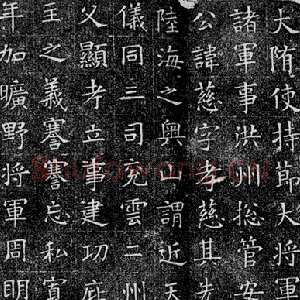 大隋使持節大將軍
諸軍事洪州総管安
公諱慈字孝慈其先
陸海之奥山謂近天
儀同三司兖雲二州
父顯考立事建功
主之義謇謇忘私賓
年加曠野將軍周明